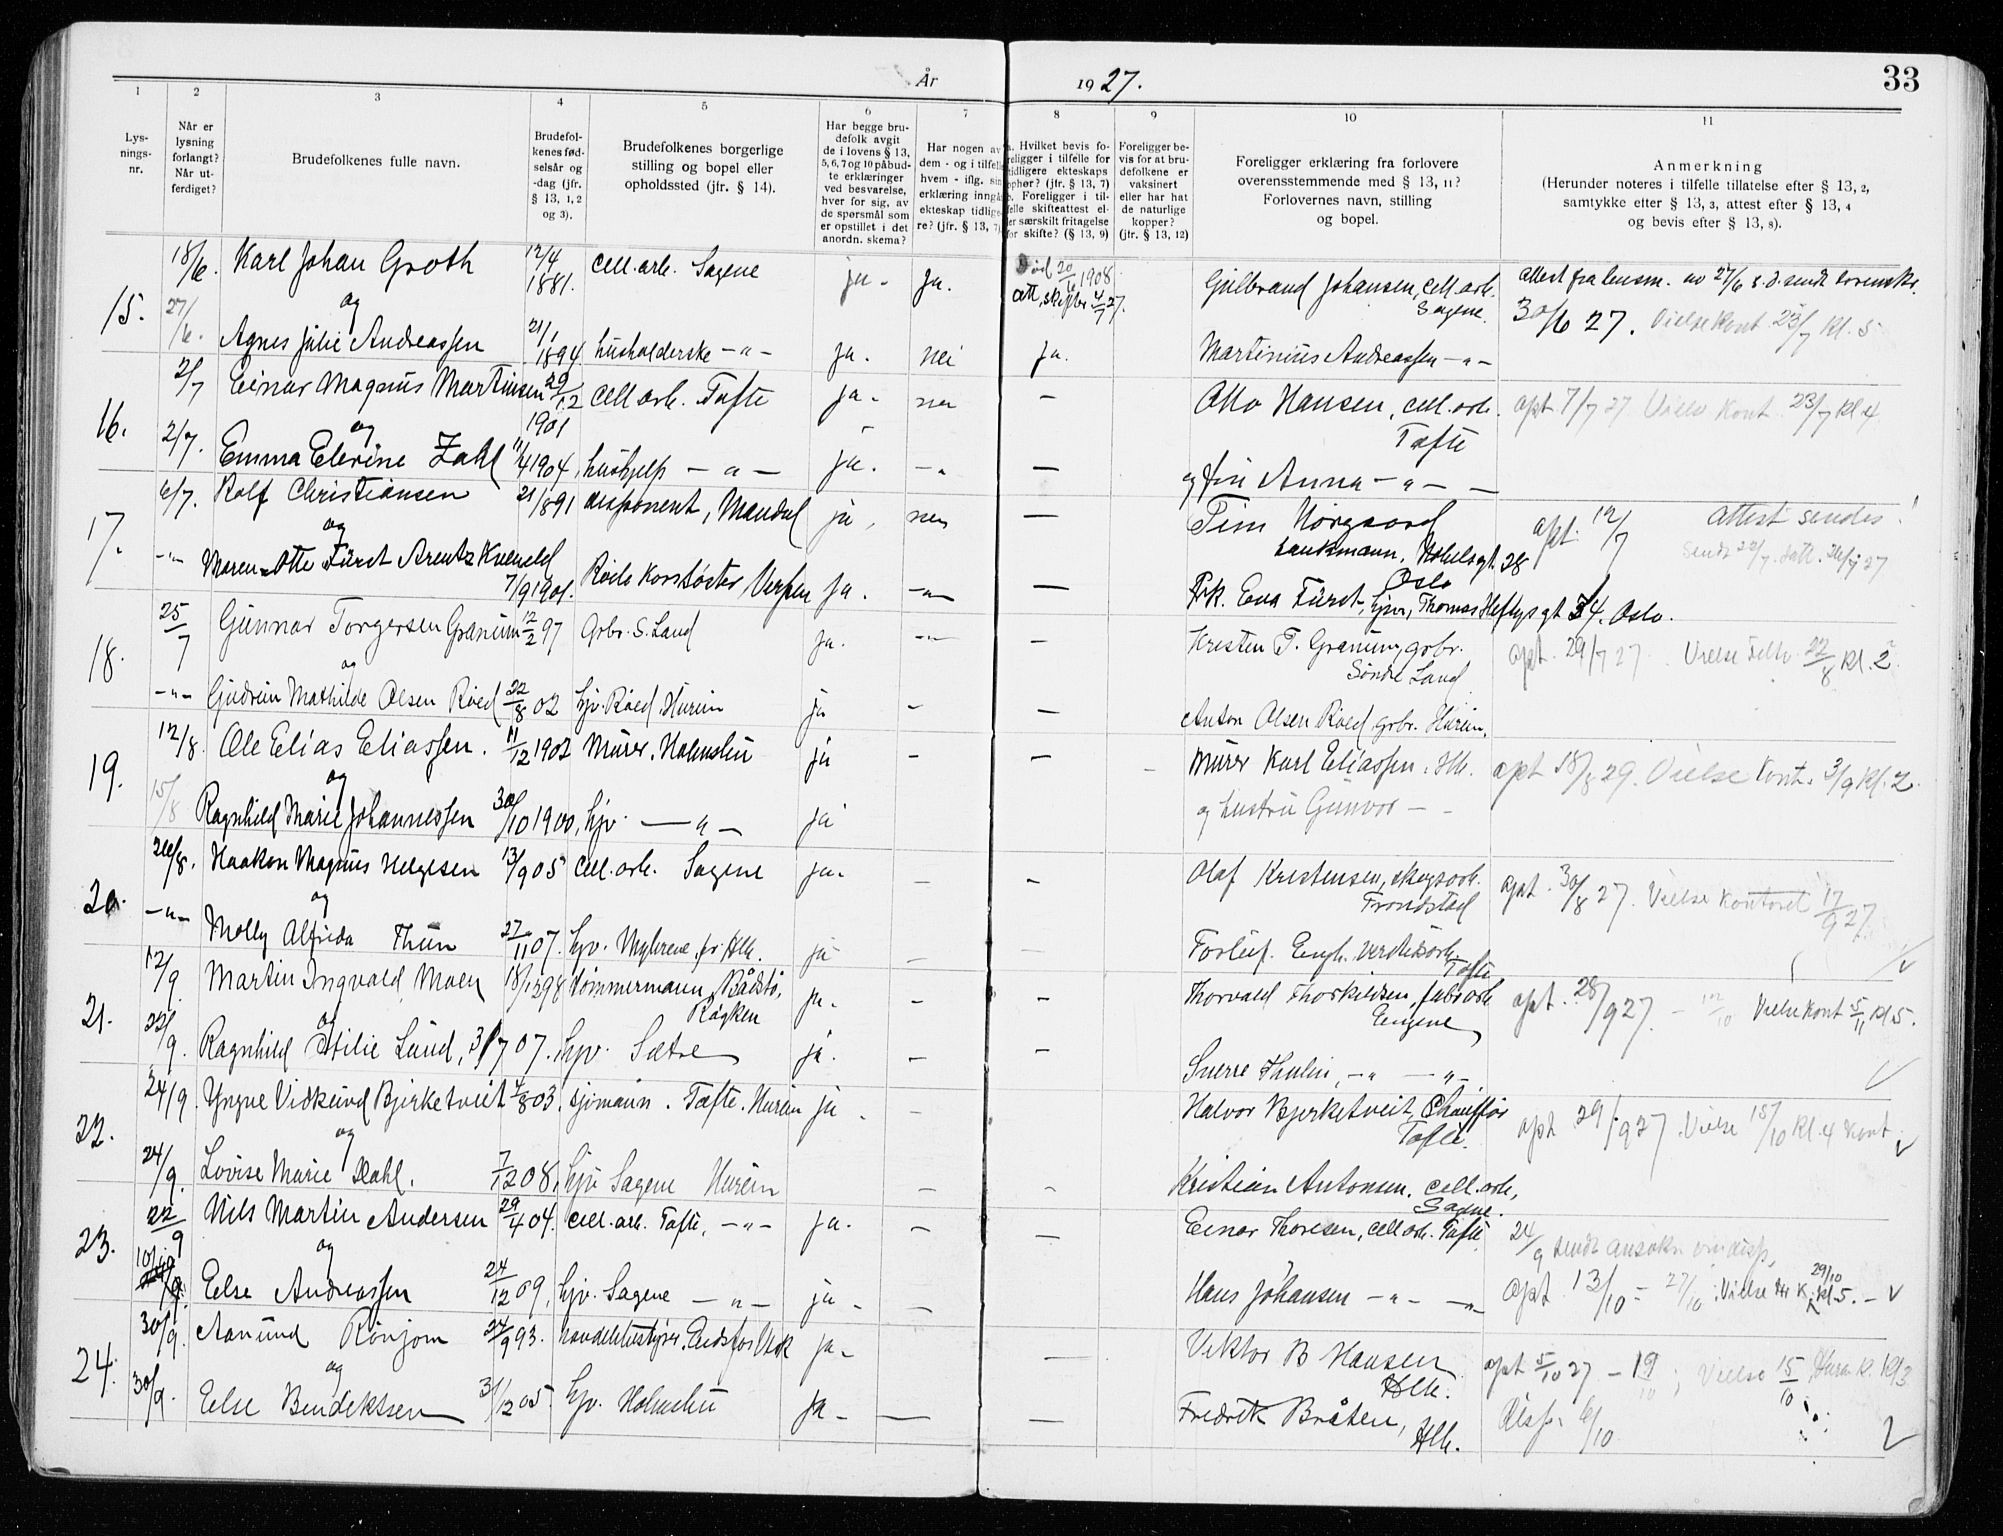 År 1927.
33
1 2 3 4 5 6 7 8 9 10 11
Lys-
nings-
nr.
Når er
lysning
forlangt?
Når ut-
ferdiget?
Brudefolkenes fulle navn.
Brudefol-
kenes fød-
selsår og
-dag (jfr.
§ 13, 1, 2
og 3).
Brudefolkenes borgerlige
stilling og bopel eller
opholdssted (jfr. § 14).
Har begge bru-
defolk avgit
de i lovens § 13,
5, 6, 7 og 10 påbud-
te erklæringer
ved besvarelse,
hver for sig, av
de spørsmål som
er opstillet i det
anordn. skema?
Har nogen av
dem - og i tilfelle
hvem - iflg. sin
erklæring inngå
ekteskap tidlige
re? (jfr. § 13, 7)
a. Hvilket bevis fo-
religger i tilfelle for
tidligere ekteskaps
ophør? (jfr. § 13, 7)
b. Foreligger i til-
felle skifteattest el-
ler særskilt fritagelse
for skifte? (§ 13, 9)
Foreligger be-
vis for at bru-
defolkene er
vaksinert
eller har hat
de naturlige
kopper?
(jfr. § 13, 12)
Foreligger erklæring fra forlovere
overensstemmende med § 13, 11?
Forlovernes navn, stilling
og bopel.
Anmerkning
(Herunder noteres i tilfelle tillatelse efter § 13, 2,
samtykke etter § 13, 3, attest efter § 13, 4
og bevis efter § 13, 8).
15.
18/6. Karl Johan Groth 12/4 1881. cell. arb. Sagene ja - Ja. Død 20/6 1908. att. skifter 4/7 27. Gulbrand Johansen, cell. arb. Sagene. Attest fra lensm. av 27/6 s.d. sendt
og
27/6. Agnes Julie Andreassen 21/1 1894 husholderske -"- Ja. nei Ja. Martinius Andreassen -"- 30/6 27. Vielse Kont 23/7 kl. 5
16.
2/7 Einar Magnus Martinsen 29/12 1901 cell. arb. Tofte ja - nei — Otto Hansen, cell. arb. Tofte opt 7/7 27 Vielse Kont. 23/7 kl 4
og
2/7. Emma Elevine Zahl 11/4 1904, hushjelp — " — ja. -" — og fru Anna -"- —
17.
6/7. Rolf Christiansen 21/1891 disponent, Mandal ja, nei — Tim Nørgaard bankmann, Nobelsgt. 28 Oslo opt. 12/7 Attest sendes!
og
-"- Maren-Otte Fürst Arentz Kveneld 7/9 1901. Røds Korssøster Verpen Ja. -"- — Frk. Eva Fürst, hjv, Thomas Heftyes gt 34. Oslo. sendt 22/7. 27
18.
25/7 Gunnar Torgersen Granum 12/2 97 Gbr. S. Land ja. -"- Kristen T. Granum, gbr. Søndre Land opt. 29/7 27. Vielse 22/8 Kl. 2
og
-"- Gudrun Mathilde Olsen Røed 22/8 02 hjv. Røed Hurum ja - — Anton Olsen Røed gbr. Hurum.
19.
12/8. Ole Elias Eliassen. 11/12 1902 Murer. Holmsbu ja - — - Murer Karl Eliassen. Hb. opt 18/8 29. Vielse Kont. 3/9 Kl. 2.
og
15/8 Ragnhild Marie Johannessen 30/10 1900, hjv. — " — ja og hustru Gunvor — -
20.
26/8. Haakon Magnus Helgesen 13/9 05 cell. arb. Sagene ja - — — Olaf Kristensen, skogsarb. Trondstad opt. 30/8 27. Vielse Kontoret 17/9 27
og
-"- Molly Alfrida Thun 27/11 07. hjv. Myhrene pr. Hb. ja — — Torleif Engh. verkstedsarb. Tofte
21.
12/9 Martin Ingvald Moen 18/12 98 tømmermann Bådstø, Røyken ja - - — Thorvald Thorkildsen, fabr arb Engene opt. 28/9 27. - 12/10 Vielse Kont 5/11 kl 5.
og
22/9. Ragnhild Otilie Lund, 31/7 07. hjv. Sætre ja. — — Sverre Thulin, -"- -"-
22.
24/9. Yngve Vidkund Bjerketveit 4/8 03. sjømann. Tofte. Hurum ja - Halvor Bjerketveit, Chauffør Tofte. opt 29/9 27. Vielse 15/10 Kl. 4 Kont
og
24/9. Lovise Marie Dahl. 7/12 08, hjv Sagene Hurum — - Kristian Antonsen. cell. arb, Sagene.
23.
22/9 Nils Martin Andersen 29/4 04. cell. arb. Tofte, -"- Ja. — — Einar Thoresen, cell arb. Tofte 24/9 sendt ansøkn om disp,
og
10/10 Else Andreassen 24/12 09, hjv. Sagene — " — ja - — Hans Johansen -"- -"- opt 13/10 = 27/10; Vielse Hr K. 29/10 kl. 5. -
24.
30/9. Aanund Rønjom 24/9 93. handelsbestyrer. Ja - — Viktor B Hansen Hlb. opt 5/10 27 - 19/10; Vielse 15/10 Hurum K. Kl 3
og
30/9. Else Bendiktsen 31/12 05. hjv. Holmsbu Ja - — — Fredrik Bråten, Hlb. Disp. 6/10